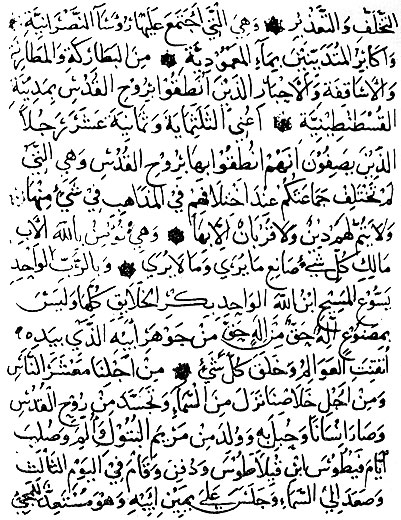 التخلف والتعذير ۞ وهي التي اجتمع عليها روسآ النصرانية
واكابر المتدينين بمآء المعمودية ۞ من البطاركة والمطارنة
والاشاقفة والاحبار الذين انطقوا بروح القدس بمدينة
القسطنطينية ۞ اعني الثلثماية وثمانية عشر رجلاً
الذين يصفون انهم انطقوا بها بروح القدس وهي التي
لم تختلف جماعتكم عند اختلافهم في المذاهب في شيء منها
ولا يتم لهم دين ولا قربان الا بها ۞ وهي نومن بالله الاب
مالك كل شيء صانع ما يرى وما لا يرى ۞ وبالرب الواحد
يسوع المسيح ابن الله الواحد بكر الخلايق كلها وليس
بمصنوع اله حق من اله حق من جوهر ابيه الذي بيده
اتقنت العوالم وخلق كل شيء ۞ من اجلنا معشر الناس
ومن اجل خلاصنا نزل من السمآ وتجسد من روح القدس
وصار انسانا وحبل به وولد من مريم البتول والم وصلب
ايام فيطوس ابن فيلاطوس ودفن وقام في اليوم الثالث
وصعد الى السمآ وجلس على يمين ابيه وهو مستعد للمجيء